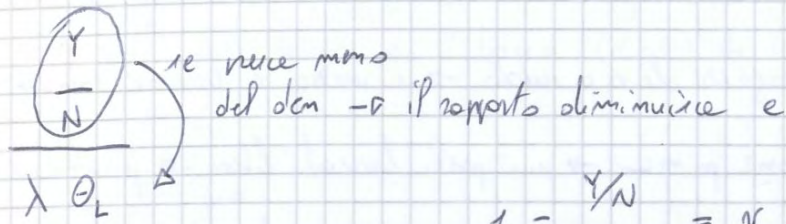 Y
N
se cresce meno
del den → il rapporto diminuisce e
λ θL
1 = Y/N = N